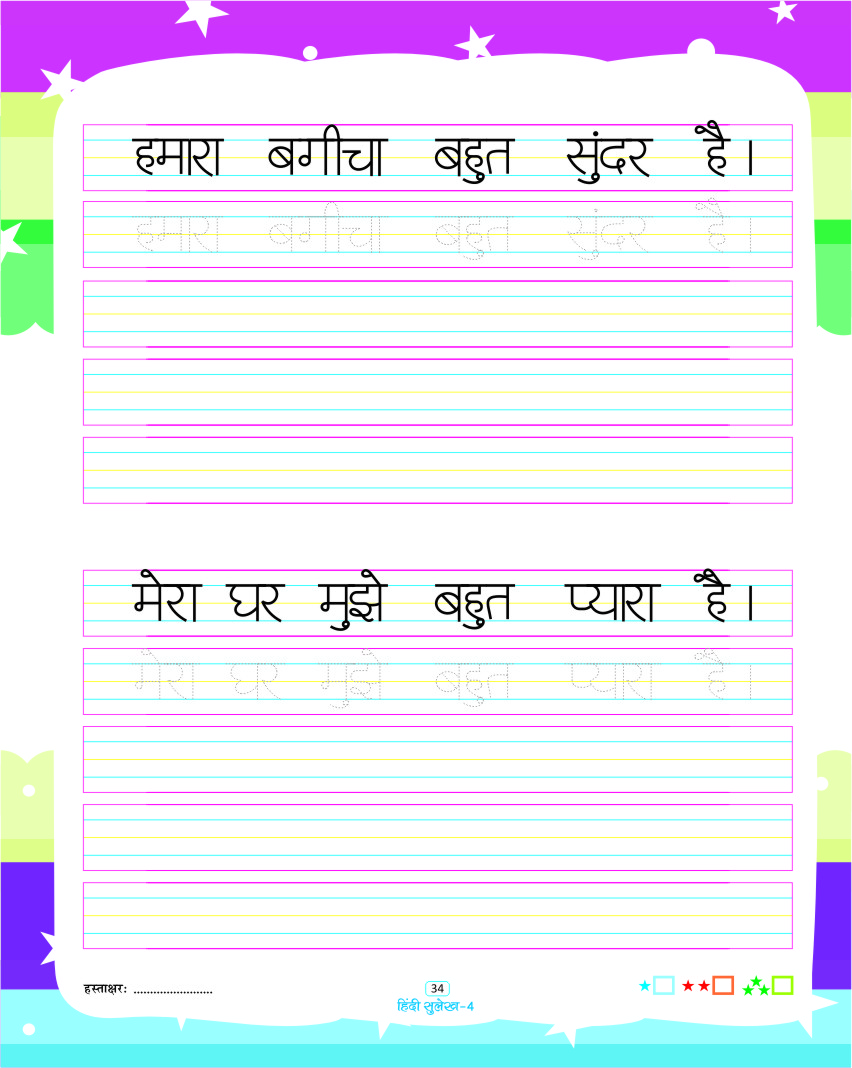 हमारा बगीचा बहुत सुंदर है।
हमारा बगीचा बहुत सुंदर है।
मेरा घर मुझे बहुत प्यारा है।
मेरा घर मुझे बहुत प्यारा है।
हस्ताक्षरः ........................
34
हिंदी सुलेख-4